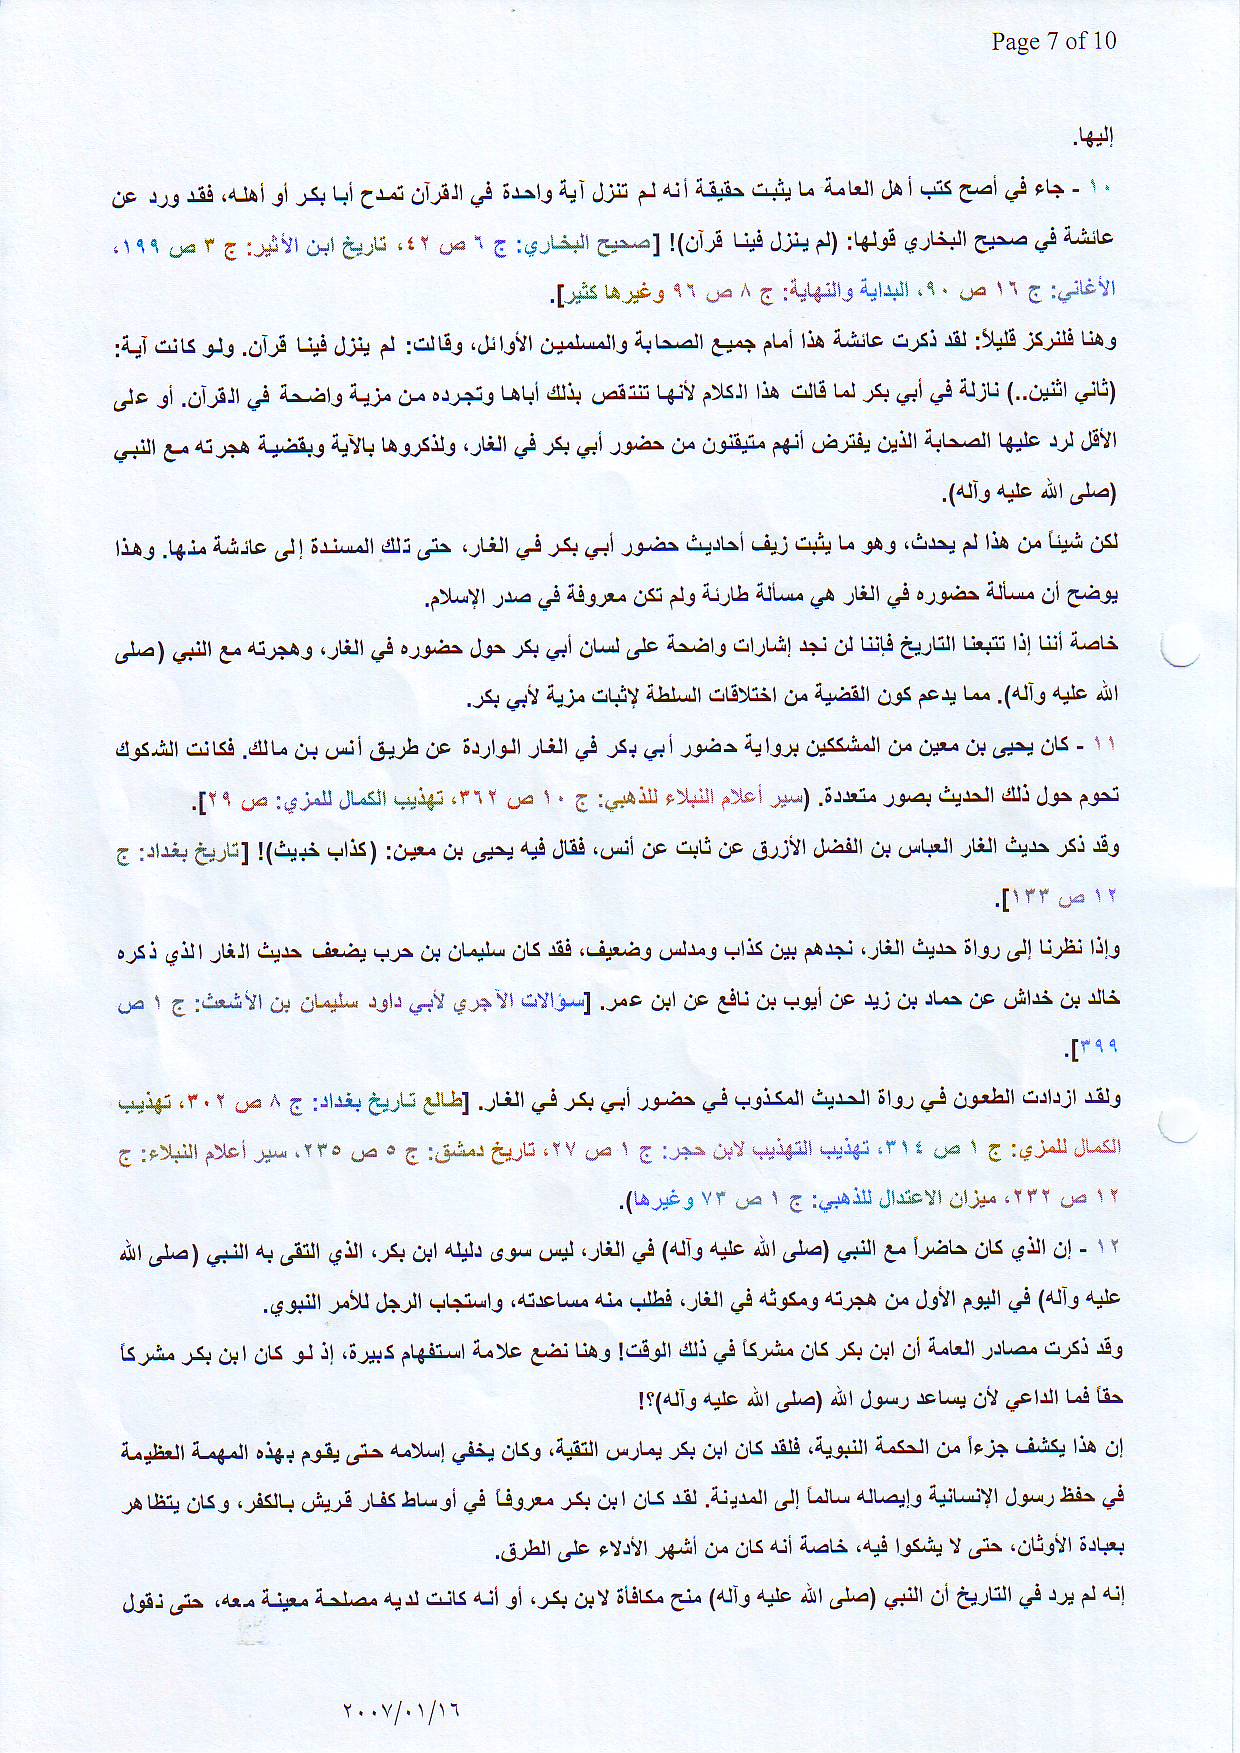 Page 7 of 10
إليها.
١٠ - جاء في أصح كتب أهل العامة ما يثبت حقيقة أنه لم تنزل آية واحدة في القرآن تمدح أبا بكر أو أهله، فقد ورد عن
عائشة في صحيح البخاري قولها: (لم ينزل فينا قرآن)! [صحيح البخاري: ج ٦ ص ٤٢، تاريخ ابن الأثير: ج ٣ ص ١٩٩،
الأغاني: ج ١٦ ص ٩٠، البداية والنهاية: ج ٨ ص ٩٦ وغيرها كثير].
وهنا فلنركز قليلاً: لقد ذكرت عائشة هذا أمام جميع الصحابة والمسلمين الأوائل، وقالت: لم ينزل فينا قرآن. ولو كانت آية:
(ثاني اثنين..) نازلة في أبي بكر لما قالت هذا الكلام لأنها تنتقص بذلك أباها وتجرده من مزية واضحة في القرآن. أو على
الأقل لرد عليها الصحابة الذين يفترض أنهم متيقنون من حضور أبي بكر في الغار، ولذكروها بالآية وبقضية هجرته مع النبي
(صلى الله عليه وآله).
لكن شيئاً من هذا لم يحدث، وهو ما يثبت زيف أحاديث حضور أبي بكر في الغار، حتى تلك المسندة إلى عائشة منها. وهذا
يوضح أن مسألة حضوره في الغار هي مسألة طارئة ولم تكن معروفة في صدر الإسلام.
خاصة أننا إذا تتبعنا التاريخ فإننا لن نجد إشارات واضحة على لسان أبي بكر حول حضوره في الغار، وهجرته مع النبي (صلى
الله عليه وآله). مما يدعم كون القضية من اختلاقات السلطة لإثبات مزية لأبي بكر.
١١ - كان يحيى بن معين من المشككين برواية حضور أبي بكر في الغار الواردة عن طريق أنس بن مالك. فكانت الشكوك
تحوم حول ذلك الحديث بصور متعددة. (سير أعلام النبلاء للذهبي: ج ١٠ ص ٣٦٢، تهذيب الكمال للمزي: ص ٢٩].
وقد ذكر حديث الغار العباس بن الفضل الأزرق عن ثابت عن أنس، فقال فيه يحيى بن معين: (كذاب خبيث)! [تاريخ بغداد: ج
١٢ ص ١٣٣].
وإذا نظرنا إلى رواة حديث الغار، نجدهم بين كذاب ومدلس وضعيف، فقد كان سليمان بن حرب يضعف حديث الغار الذي ذكره
خالد بن خداش عن حماد بن زيد عن أيوب بن نافع عن ابن عمر. [سؤالات الآجري لأبي داود سليمان بن الأشعث: ج ١ ص
٣٩٩].
ولقد ازدادت الطعون في رواة الحديث المكذوب في حضور أبي بكر في الغار. [طالع تاريخ بغداد: ج ٨ ص ٣٠٢، تهذيب
الكمال للمزي: ج ١ ص ٣١٤، تهذيب التهذيب لابن حجر: ج ١ ص ٢٧، تاريخ دمشق: ج ٥ ص ٢٣٥، سير أعلام النبلاء: ج
١٢ ص ٢٣٢، ميزان الاعتدال للذهبي: ج ١ ص ٧٣ وغيرها).
١٢ - إن الذي كان حاضراً مع النبي (صلى الله عليه وآله) في الغار، ليس سوى دليله ابن بكر، الذي التقى به النبي (صلى الله
عليه وآله) في اليوم الأول من هجرته ومكوثه في الغار، فطلب منه مساعدته، واستجاب الرجل للأمر النبوي.
وقد ذكرت مصادر العامة أن ابن بكر كان مشركاً في ذلك الوقت! وهنا نضع علامة استفهام كبيرة، إذ لو كان ابن بكر مشركاً
حقاً فما الداعي لأن يساعد رسول الله (صلى الله عليه وآله)؟!
إن هذا يكشف جزءاً من الحكمة النبوية، فلقد كان ابن بكر يمارس التقية، وكان يخفي إسلامه حتى يقوم بهذه المهمة العظيمة
في حفظ رسول الإنسانية وإيصاله سالماً إلى المدينة. لقد كان ابن بكر معروفاً في أوساط كفار قريش بالكفر، وكان يتظاهر
بعبادة الأوثان، حتى لا يشكوا فيه، خاصة أنه كان من أشهر الأدلاء على الطرق.
إنه لم يرد في التاريخ أن النبي (صلى الله عليه وآله) منح مكافأة لابن بكر، أو أنه كانت لديه مصلحة معينة معه، حتى نقول
٢٠٠٧/٠١/١٦